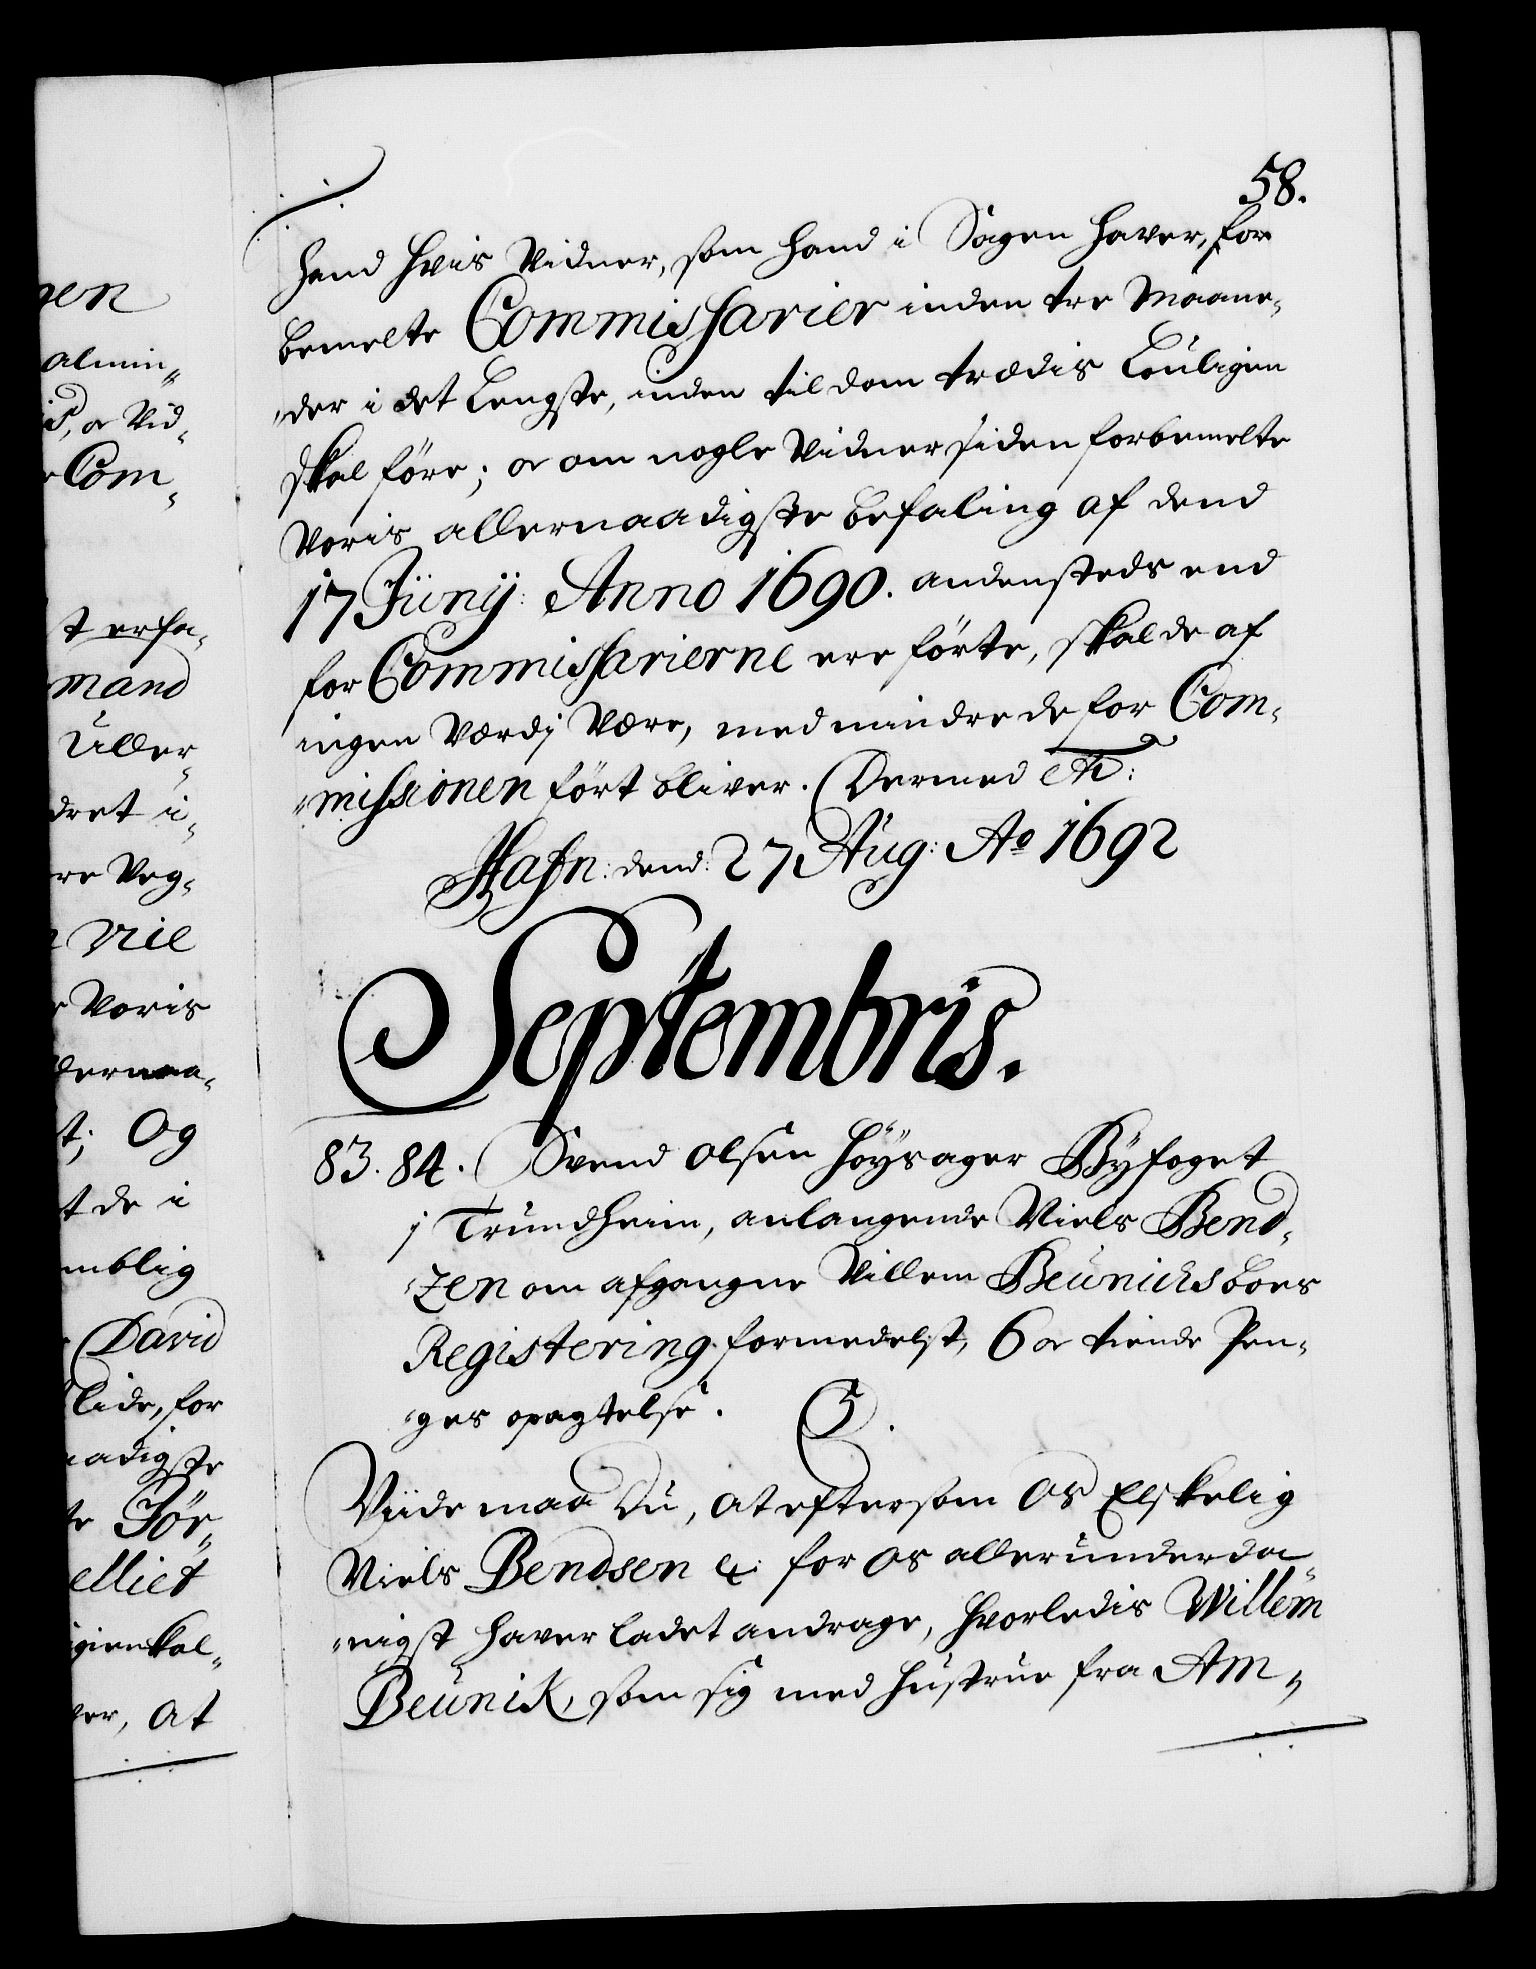 58.
hand hvis Vidner, som hand i Sagen haver, for
bemelte Commissarier inden tre Maane-
"der i det Lengste, inden til dom trædis Louligen
skal före; og om nogle Vidner siden forbemelte
Voris allernaadigste befaling af dend
17 Junij: Anno 1690. andensteds end
for Commissarierne ere förte, skal de af
ingen Værdj være, med mindre de for Com-
"missionen fört bliver. Dermed etc:
Hafn: dend: 27 Aug: Ao 1692
Septembris.
83. 84. Svend Olsen Höysager Byfoget
j Trundheim, anlangende Niels Bend-
"zen om afgangne Villem Beunichs boes
Registering formedelst, 6 og tiende Pen-
"ges opagtelse. C5.
Viide maa Du, at eftersom Os Elskelig
Niels Bendsen etc: for Os allerunderda
"nigst haver ladet andrage, hvorledis Willem
Beunik, som sig med hustrue fra Am-
nen
almin-
is, og Vid-
Com-
t erfa-
mand
Uller-
dret i-
re Veg-
Nie
Voris
lernaa-
t; Og
t de i
mblig
David
lide, for
naadigste
te Jör-
elliet
gienkal-
ver, at